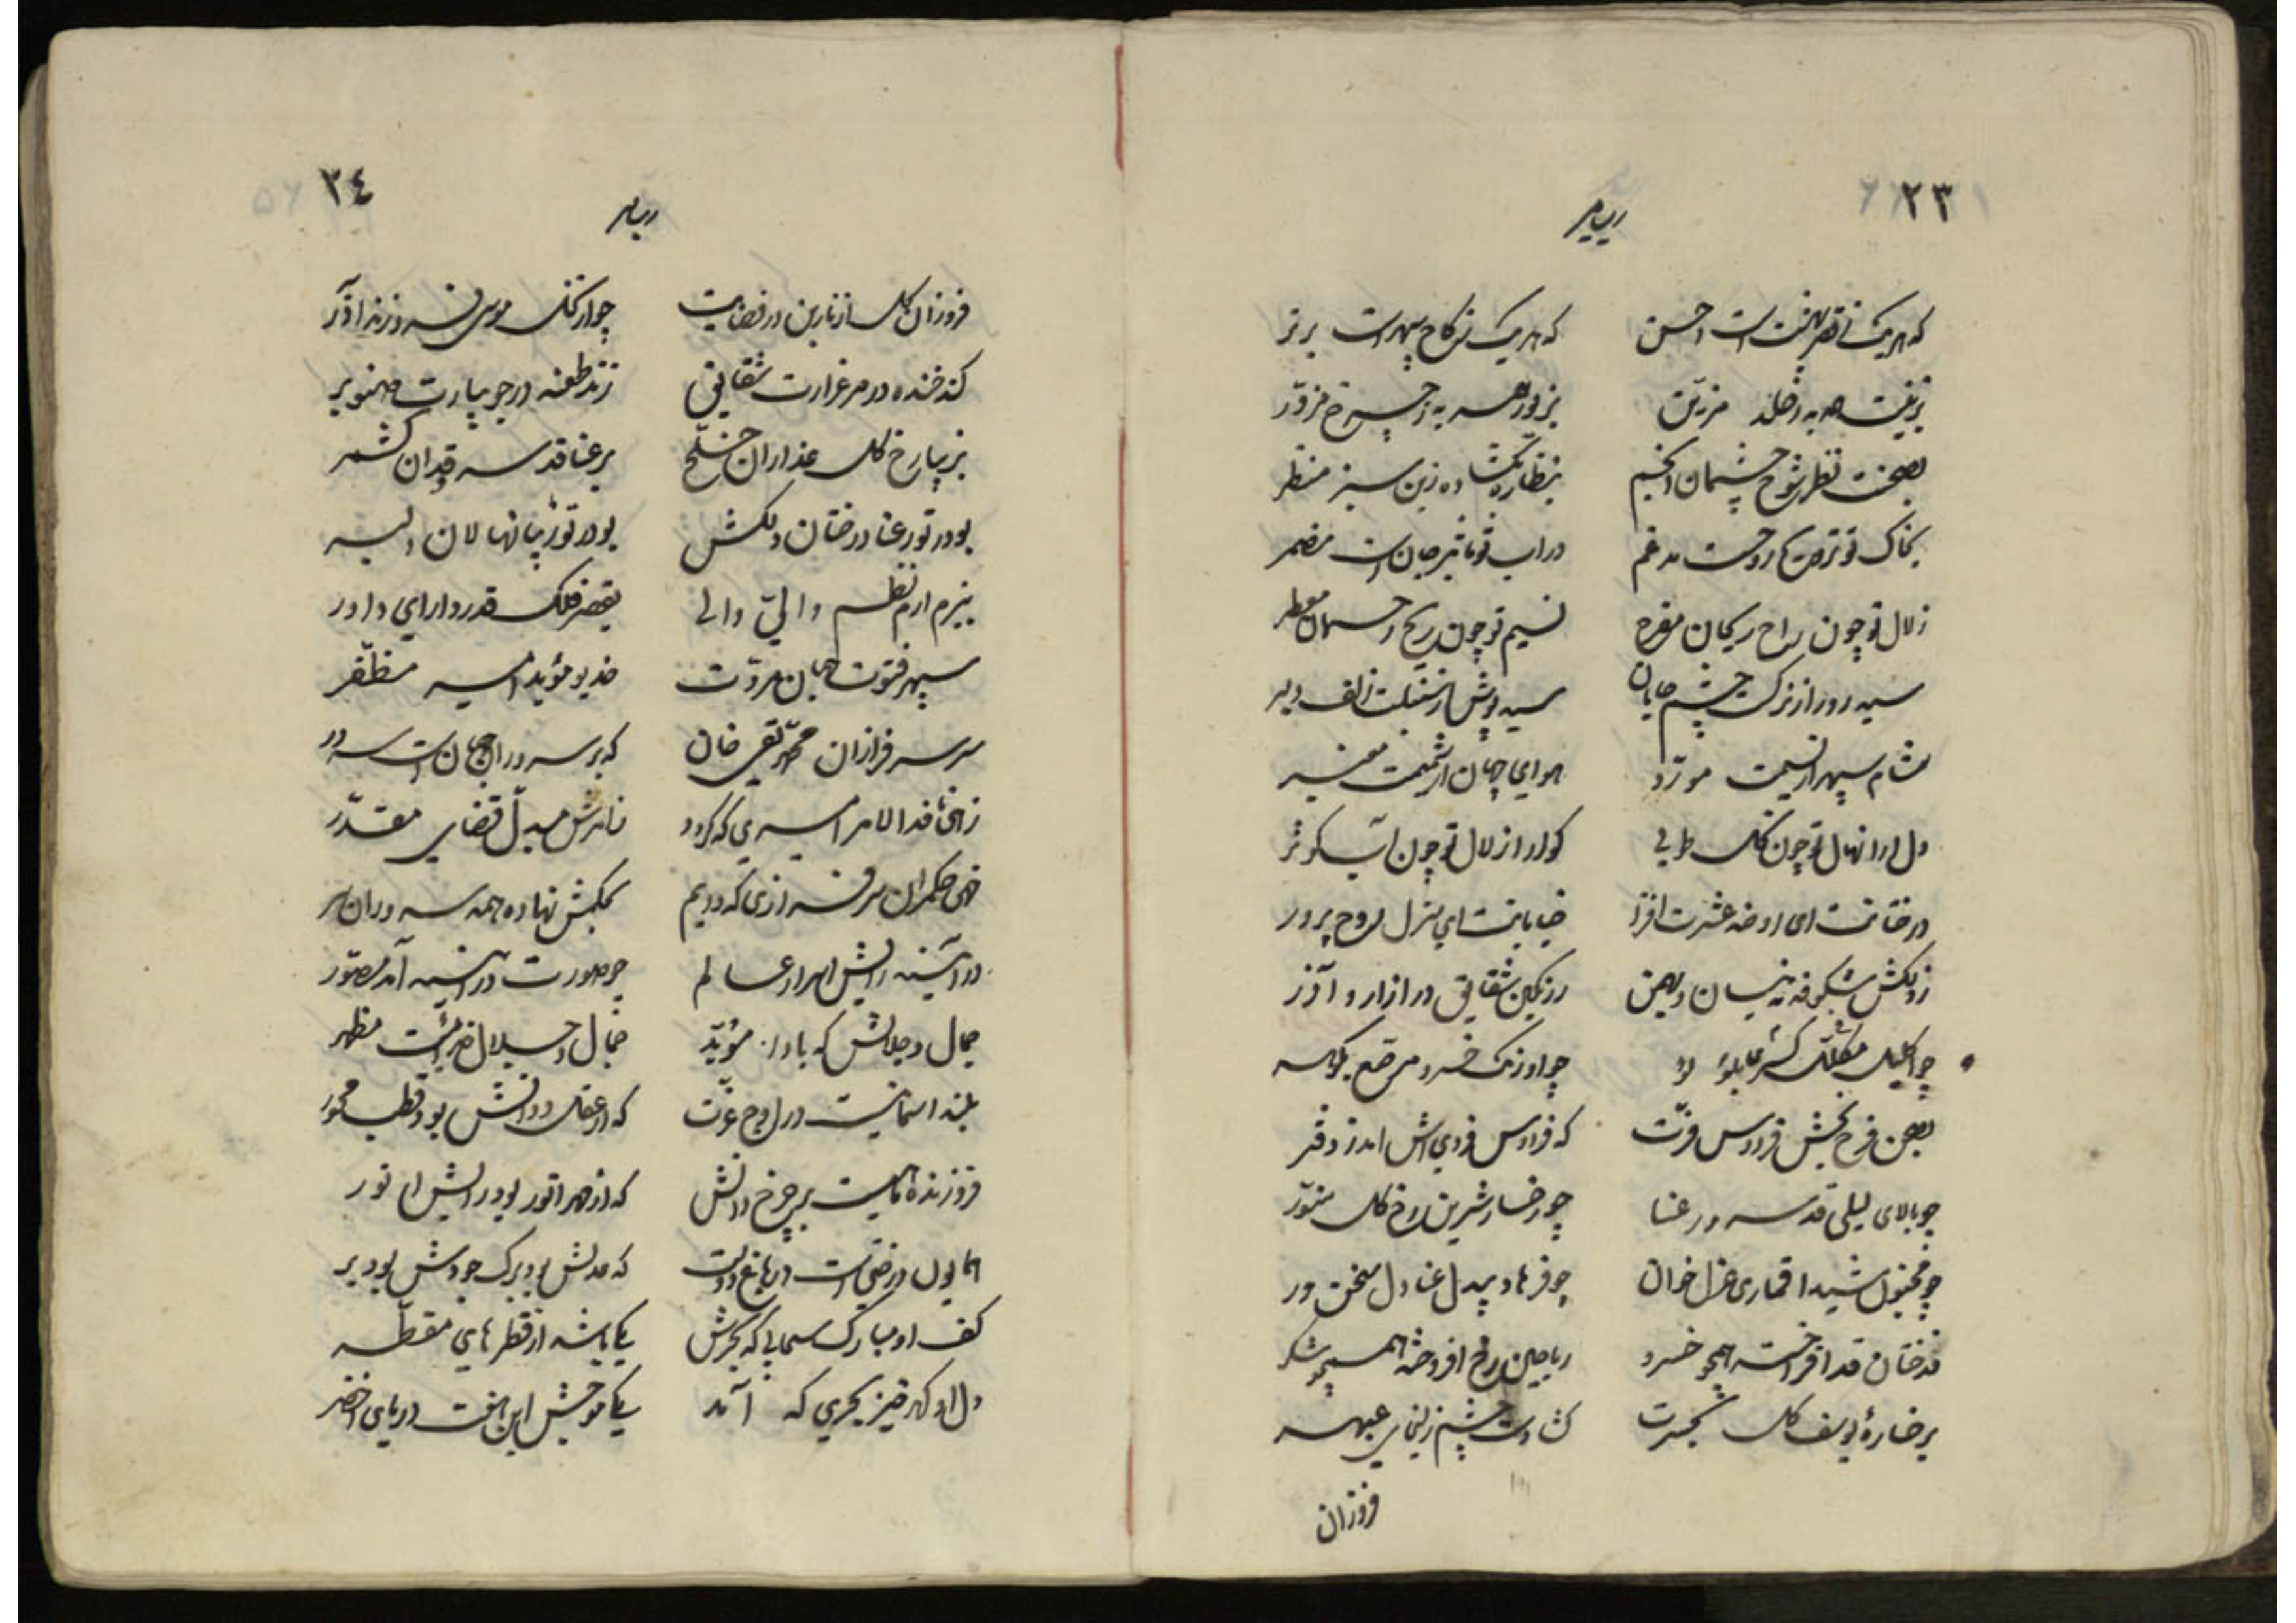 ٢٣
که هریک ز قصر بهشت است احسن    که هریک ز کاخ سپهر است برتر
بزینت همه به ز خلد مزین    بزیور همه به ز چرخ مزور
بصحنت نظر شوخ چشمان انجم    بنظاره بگشاده زین سبز منظر
بخاک تو ترویح روحست مدغم    در آب تو تاثیر جان است مضمر
زلال تو چون راح ریحان مفرح    نسیم تو چون ریح معطر
سیه روز از نرگست چشم جانان    سیه پوش از سنبلت زلف دلبر
مشام سپهر از نسیمت مورد    هوای جهان از شمیمت معنبر
دل آرا نهال تو چون نخل طوبی    گوارا زلال تو چون آب کوثر
درختانت ای روضه عشرت افزا    خیابانت ای منزل روح پرور
ز دلکش شکوفه به نیسان و بهمن    ز رنگین شقایق در آزار و آذر
چو اکلیل مکلل بلؤلؤ    چو اورنگ خسرو مرصع بگوهر
بصحن فرح بخش فردوس فرت    که فردوس فردی است از دفتر
چو بالای لیلی قد سرو رعنا    چو رخسار شیرین رخ گل منور
چو مجنون شیدا قماری غزل خوان    چو فرهاد بیدل عنادل سخن ور
درختان قد افراخته همچو خسرو    ریاحین رخ افروخته همچو شکر
برخسارهٔ یوسف گل بحیرت    گشادست چشم زلیخای عبهر
فروزان
٢٤
فروزان گل از نار بن در فضایت    چو از نخل موسی فروزنده آذر
کند خنده در مرغزارت شقایق    زند طعنه در جویبارت صنوبر
بزیبا رخ گل عذاران خلخ    برعنا قد سرو قدان کشمر
بود در تو رعنا درختان دلکش    بود در تو زیبا نهالان دلبر
ببزم ارم نظم والی والی    بقصر فلک قدر دارای داور
سپهر فتوت جهان مروت    خدیو مؤید امیر مظفر
سر سرفرازان محمد تقی خان    که بر سروران جهان است سرور
زهی نافذ الامر امیری که گردد    ز امرش مبدل قضای مقدر
زهی حکمران سرفرازی که دیهیم    بحکمش نهاده همه سروران سر
در آئینه رایش اسرار عالم    چو صورت در آئینه آمد مصور
جمال و جلالش که بادا مؤید    جمال و جلال خدائیست مظهر
بلند آسمانیست در اوج عزت    که از عقل و دانش بود قطب و محور
فروزنده ماهیست بر چرخ دانش    که از مهر انور بود رایش انور
همایون درختی است در باغ دولت    که عدلش بود برگ و جودش بود بر
کف او مبارک سحابی که بحرش    یکی باشد از قطرهای مقطر
دل او گهر خیز بحری که آمد    یکی موجش این هفت دریای اخضر